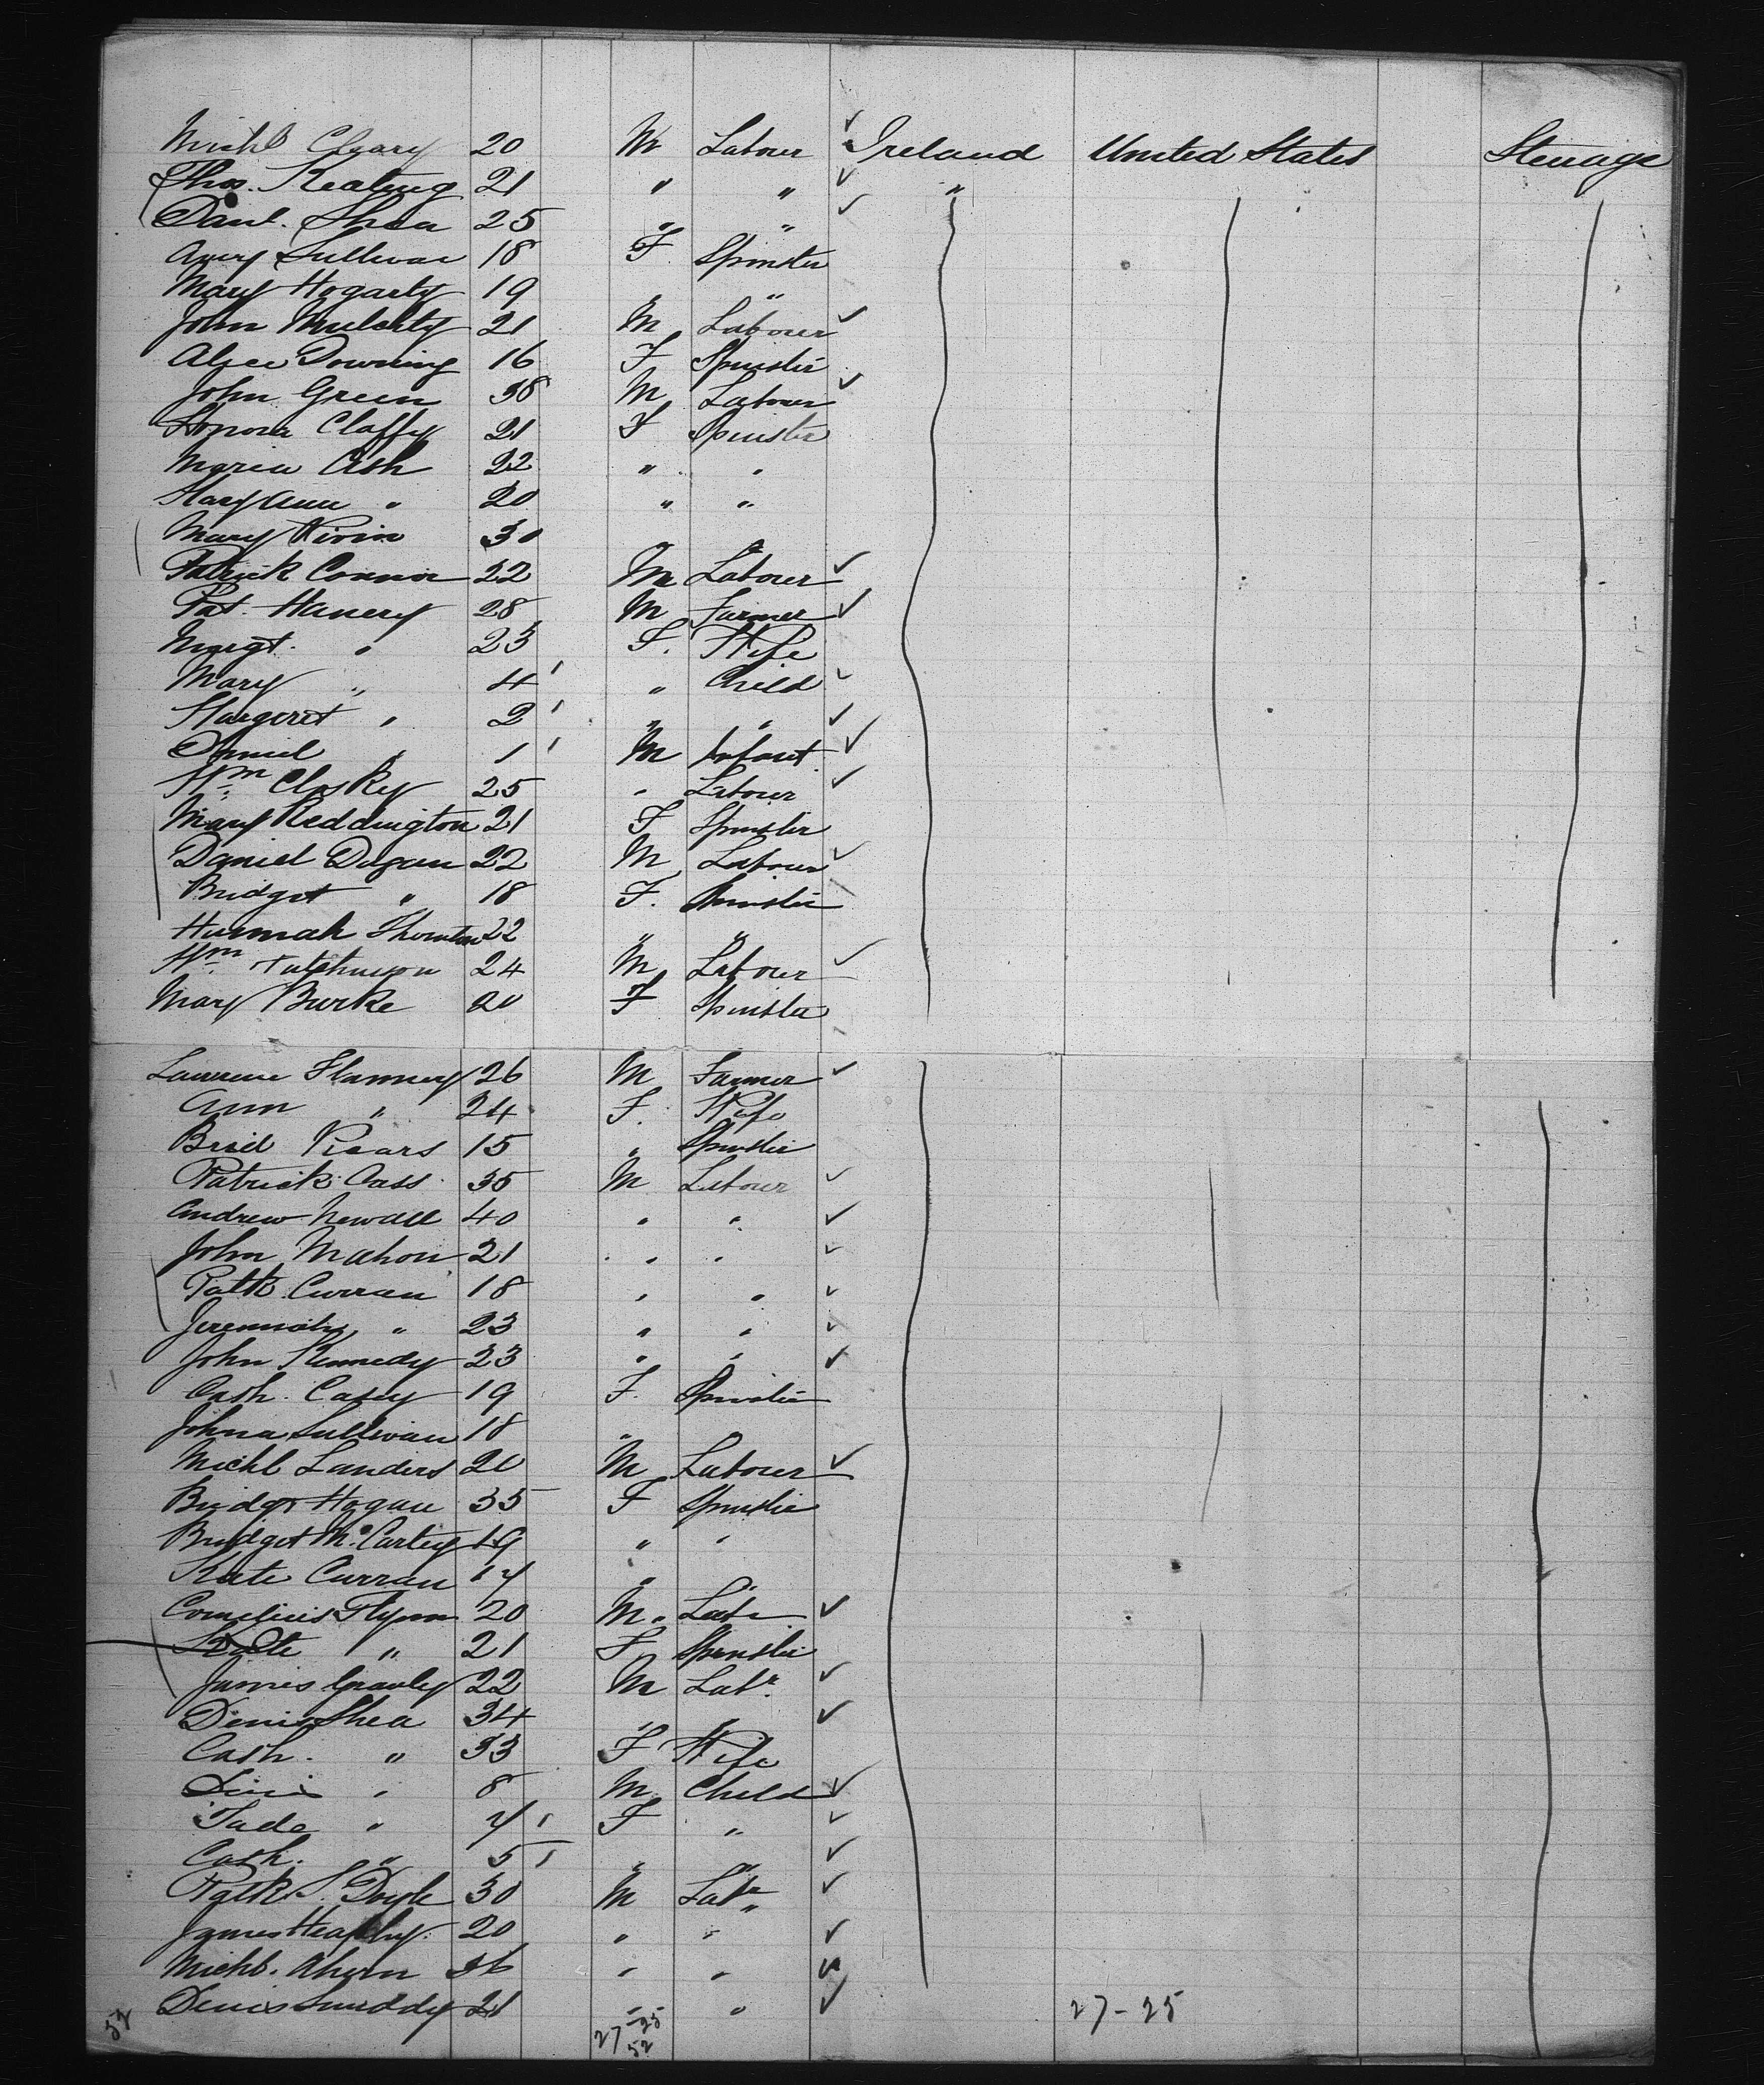 Michl Cleary 20 M Labour Ireland United States Steerage
Thos. Keating 21 " " "
Danl. Shea 25 " "
Sullivan 18 F Spinster
Mary Hogarty 19 " "
John Mulcahy 21 M Labourer
Alice Downing 16 F Spinster
John Green 38 M Labourer
Honora Claffy 21 F Spinster
Maria Ash 22 " "
Mary Ann " 20 " "
Mary 30 " "
Patrick Connor 22 M Labourer
Pat. Hanery 28 M Farmer
Margt. " 23 F. Wife
Mary " 4 " Child
Margaret " 2 " "
Daniel " 1 M Infant.
Wm Clasky 25 " Labour
Mary Reddington 21 F Spinster
Daniel Dugan 22 M Labour
Bridget " 18 F. Spinster
Hannah Thornton 22 " "
Wm Hutchinson 24 M Labour
Mary Burke 20 F Spinster
Lawrence Flannery 26 M Farmer
Ann " 24 F. Wife
Brid 15 " Spinster
Patrick Cass 35 M Labour
Andrew Newall 40 " "
John Mahon 21 " "
Patk. Curran 18 " "
Jeremiah " 23 " "
John Kennedy 23 " "
Cath. Casey 19 F. Spinster
Johna Sullivan 18 " "
Michl Landers 20 M Labourer
Bridgt Hogan 35 F Spinster
Bridget McCartey 19 " "
Kate Curran 17 " "
Cornelius Flynn 20 M. Labr
Kate " 21 F. Spinster
James 22 M Labr.
Denis Shea 34 " "
Cath. " 33 F Wife
Denis " 8 M Child
" 4 F "
Cath. " 5 " "
Patk S. Doyle 30 M Labr
James Heaphy. 20 " "
Michl. Ahern 36 " "
Denis Smiddy 21 " " 27-25
52 27-25
52